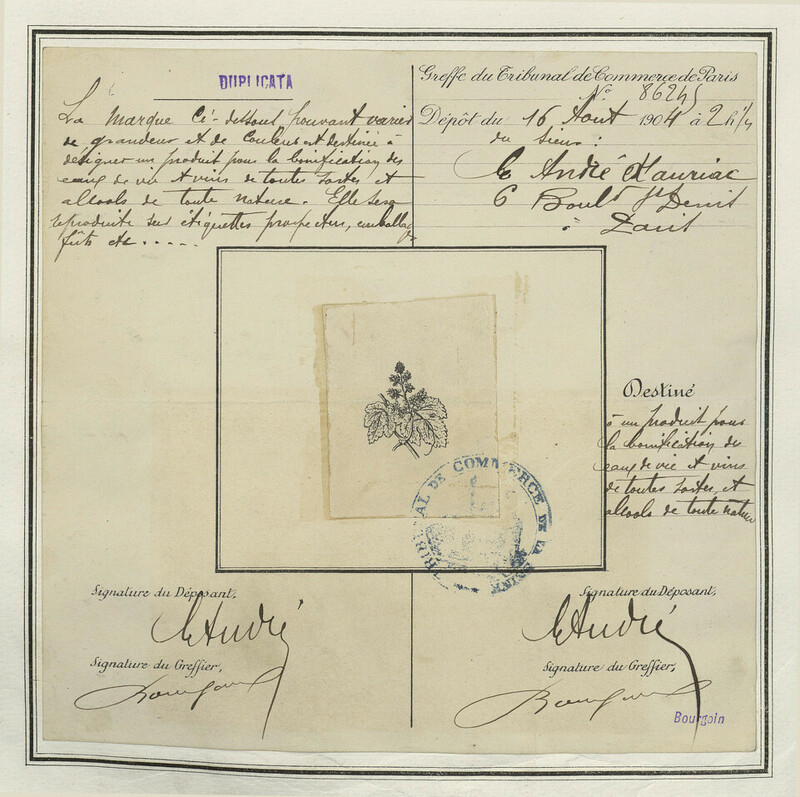 DUPLICATA
La marque ci-dessous, pouvant varier
de grandeur et de couleur est destinée à
désigner un produit pour la bonification des
eaux de vie et vins de toutes sortes et
alcools de toute nature. Elle sera
reproduite sur étiquettes prospectus, emballages
fûts etc.....
Greffe du Tribunal de Commerce de Paris
No 86245
Dépôt du 16 Août 1904 à 2h 1/4
du Sieur :
André Mauriac
6 Bould St Denis
à Paris
Destiné
à un produit pour
la bonification des
eaux de vie et vins
de toutes sortes, et
alcools de toute nature
TRIBUNAL DE COMMERCE DE LA SEINE
Signature du Déposant,
André
Signature du Greffier,
Signature du Déposant,
André
Signature du Greffier,
Bourgoin